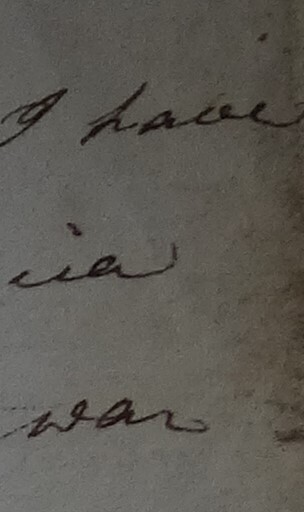 I have
ia
war